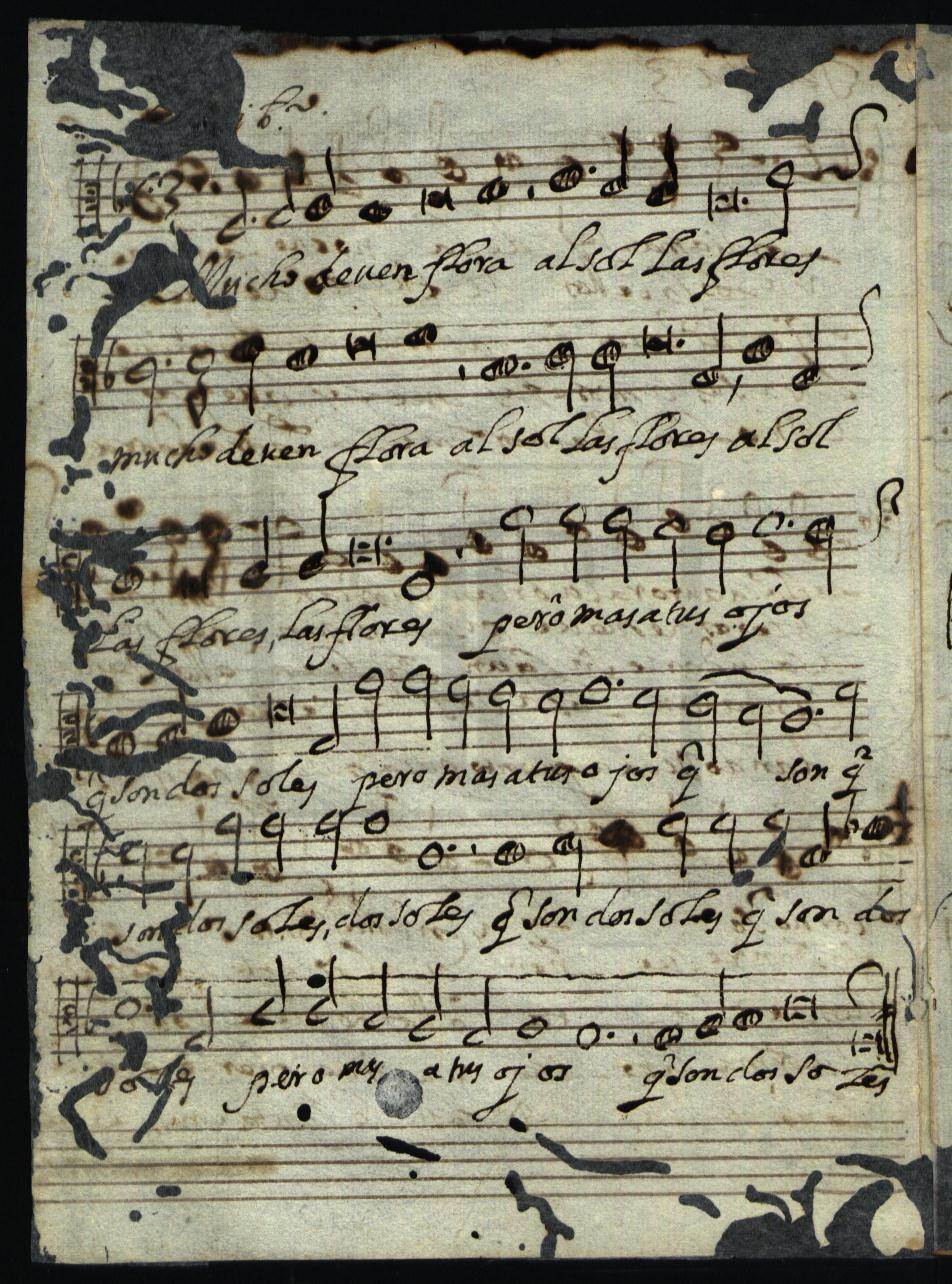 Mucho deven flora al sol las flores
mucho deven flora al sol las flores al sol
las flores, las flores pero mas a tus ojos
q̃ son dos soles pero mas a tus ojos q̃ son q̃
son dos soles, dos soles q̃ son dos soles q̃ son dos
soles pero mas a tus ojos q̃ son dos soles